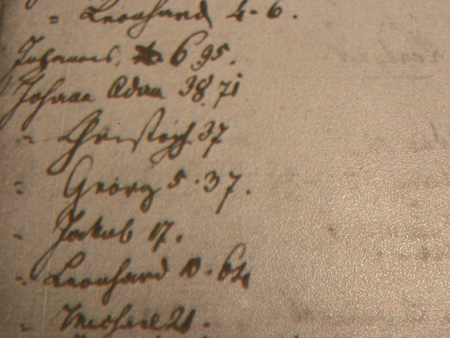 " Leonhard 4. 6.
Johannes, 6, 95.
Johann Adam 38, 71
" Christoph 37
" Georg 5. 37.
" Jakob 17.
" Leonhard 10. 64
" Michael 21.